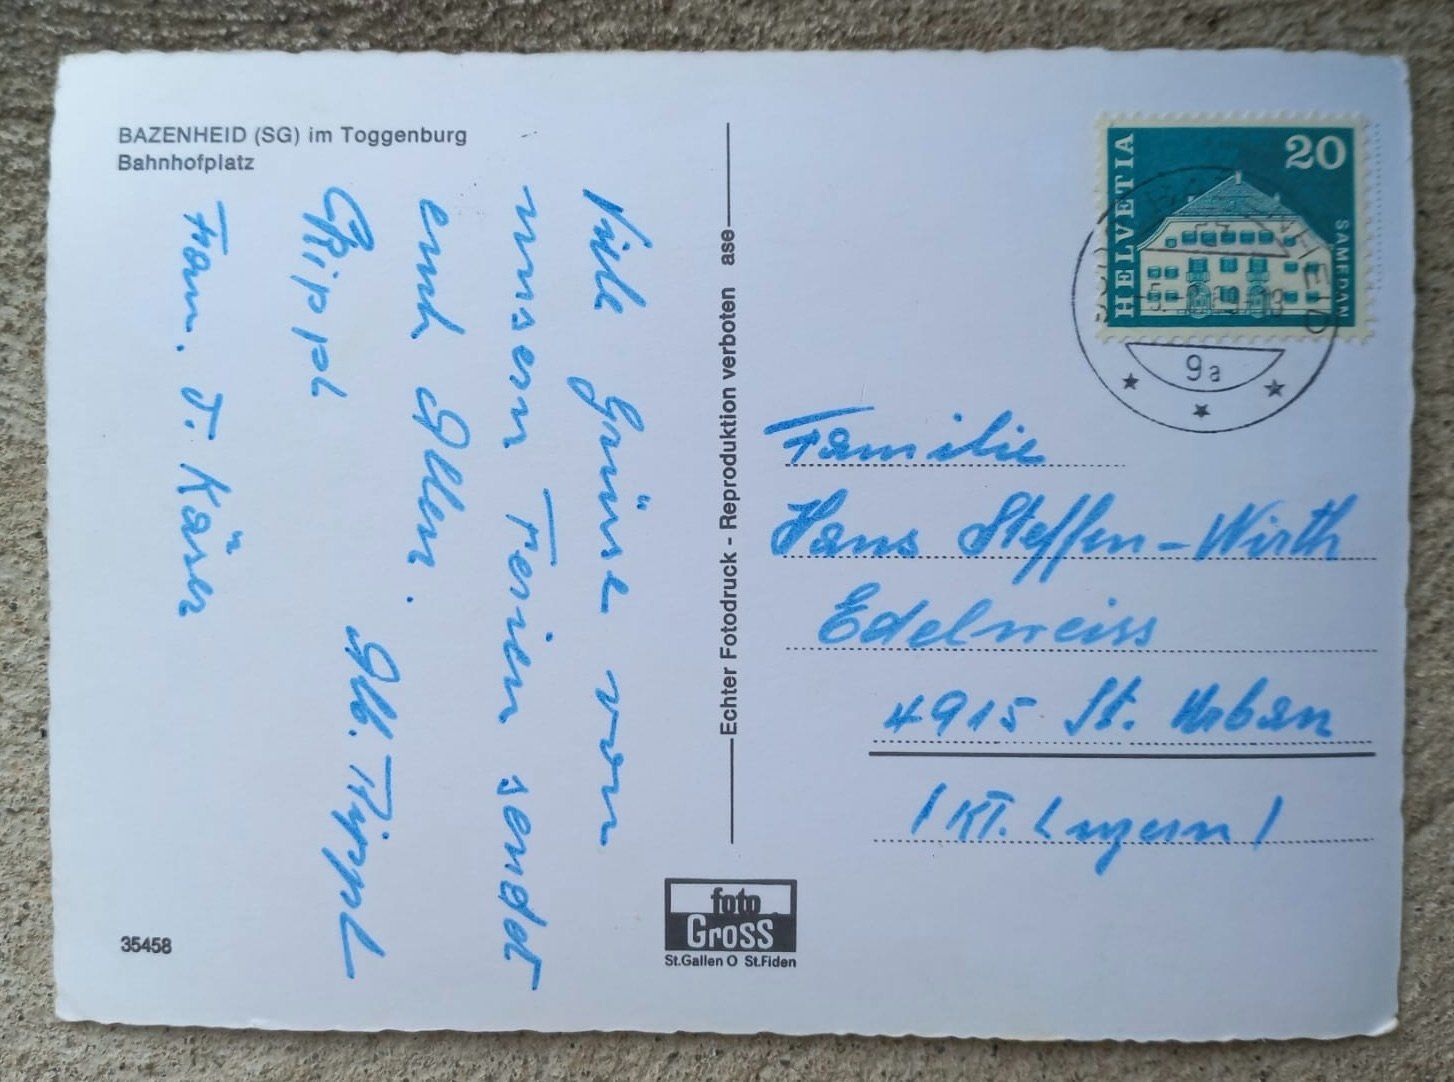 BAZENHEID (SG) im Toggenburg
Bahnhofplatz
Viele Grüsse von
unsern Ferien sendet
euch Allen.
Alb. Rippl
Fam. J. Käser
35458
Echter Fotodruck - Reproduktion verboten ase
foto
Gross
St.Gallen O St.Fiden
HELVETIA
20
SAMEDAN
9a
Familie
Hans Steffen-Wirth
Edelweiss
4915 St. Urban
(KT. Luzern)